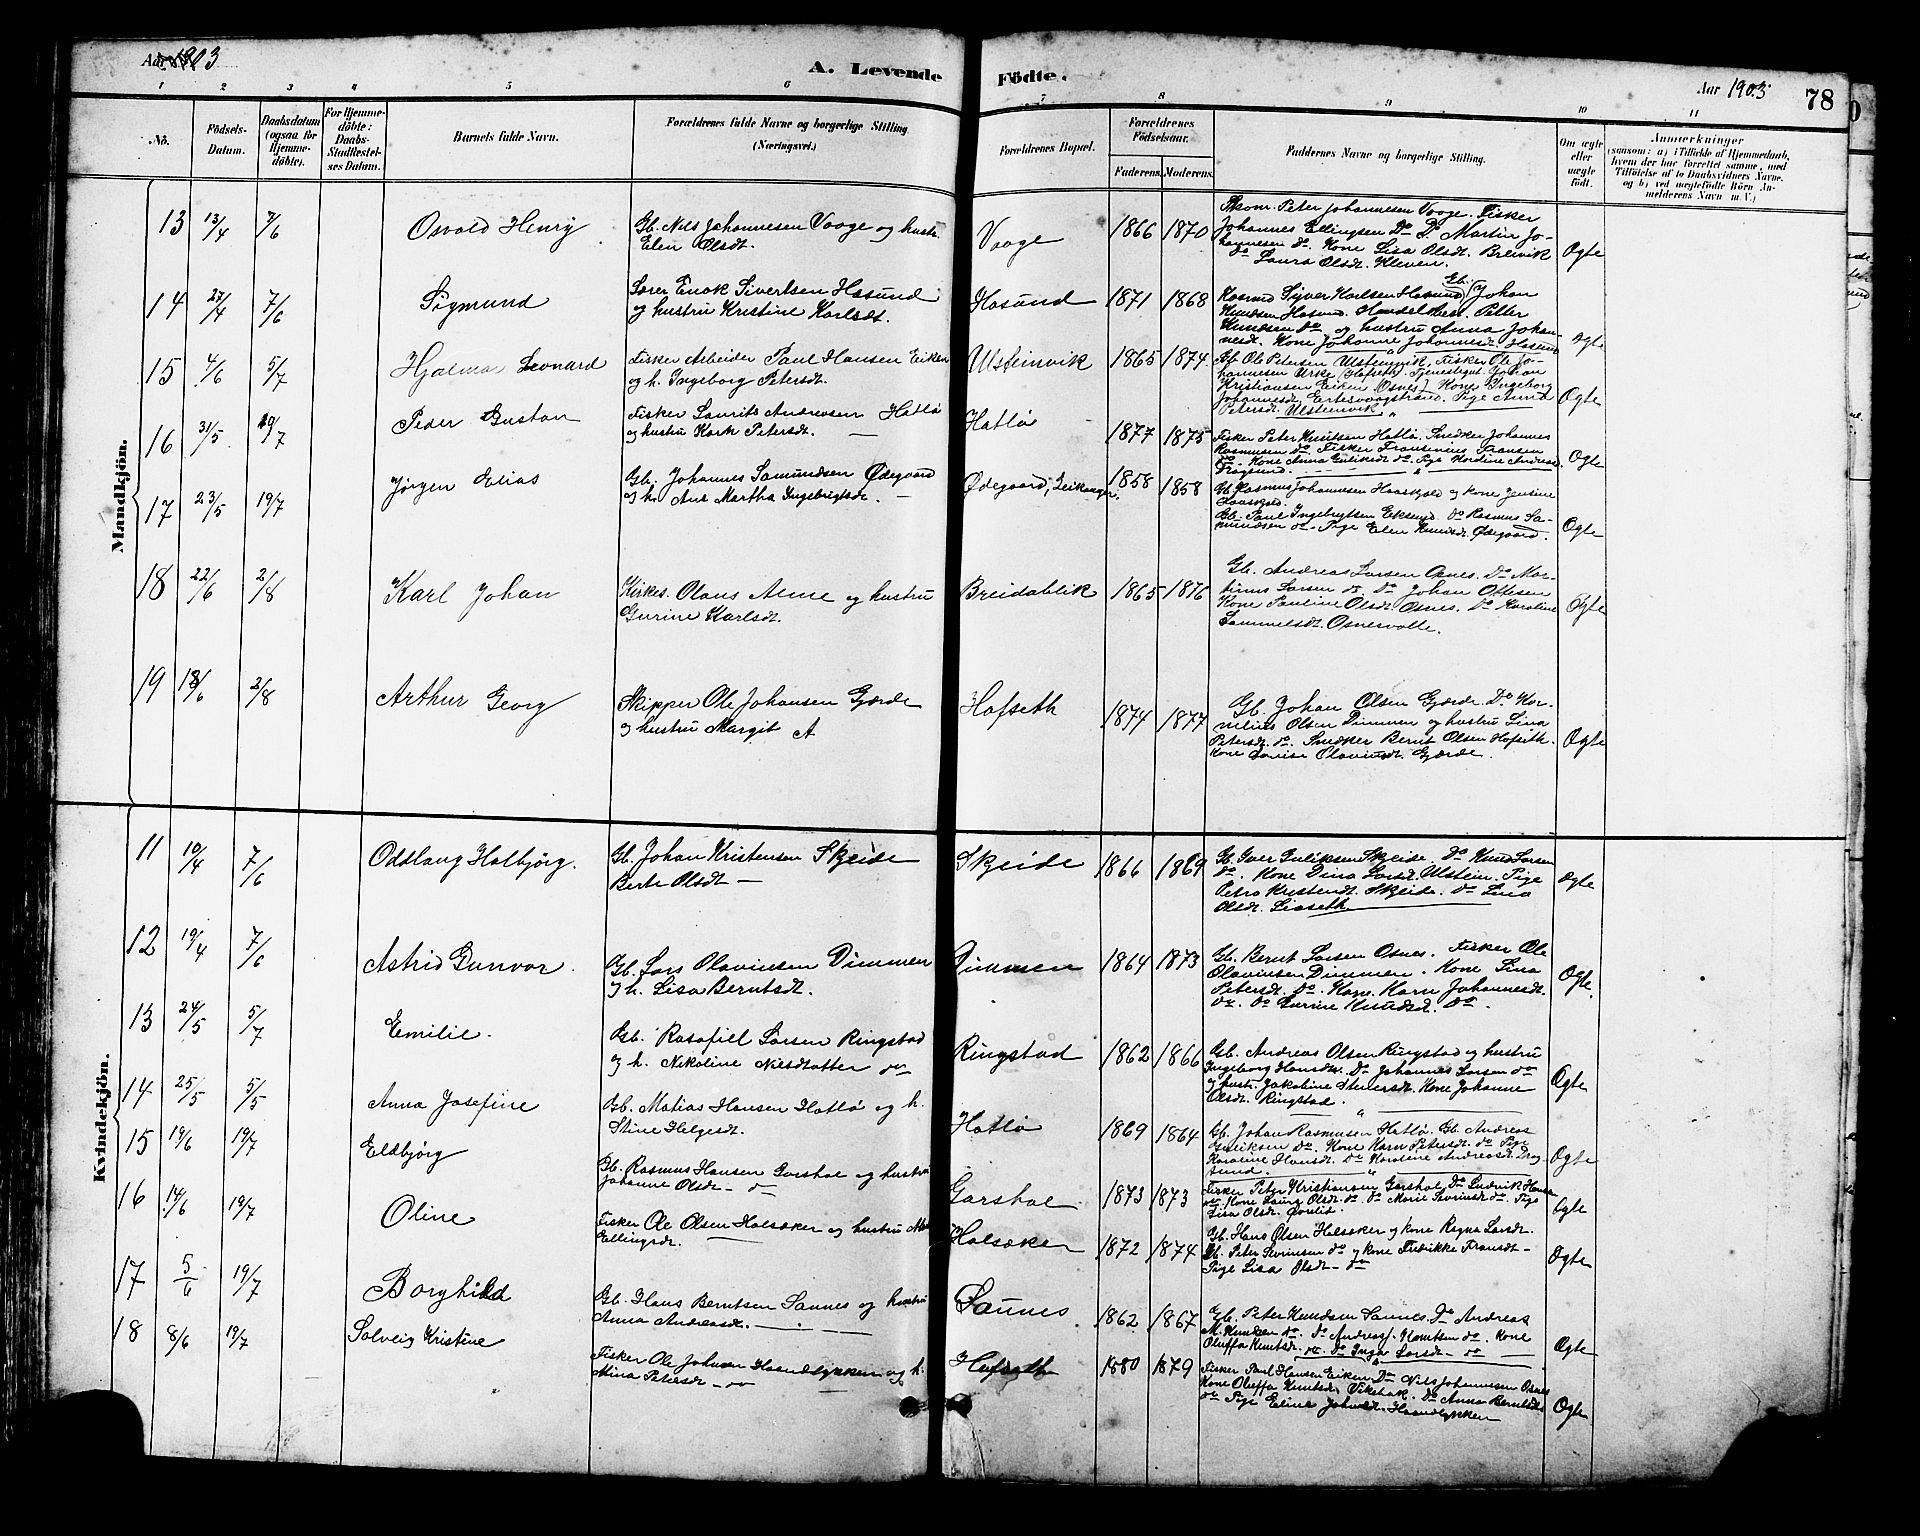 Aar 1903
A. Levende
Födte.
Aar 1903
78
1 2 3 4 5 6 7 8 9 10 11
No.
Födsels-
Datum.
Daabsdatum
(ogsaa for
Hjemme-
döbte).
For Hjemme-
döbte:
Daabs-
Stadfæstel-
ses Datum.
Barnets fulde Navn.
Forældrenes fulde Navne og borgerlige Stilling
(Næringsvei.)
Forældrenes Bopæl.
Forældrenes
Födselsaar.
Faderens. Moderens.
Faddernes Navne og borgerlige Stilling.
Om ægte
eller
uægte
födt.
Anmærkninger
(saasom: a) i Tilfælde af Hjemmedaab,
hvem der har forrettet samme, med
Tilföielse af to Daabsvidners Navne,
og b) ved uægtefödte Börn An-
melderens Navn m. V.)
Mandkjön.
13 13/4 7/6 Osvald Henry
Gb. Nils Johannesen Vaage og hustr.
Elen Olsdt.
Vaage 1866 1870
Peter Johannesen Vaage. Fisker
Johannes Ellingsen Do Do Martin Jo-
hannesen do. Kone Lisa Olsdt. Breivik
do Laura Olsdt. Kleven.
Ægte
14 27/4 7/6 Sigmund
Lærer Enok Sivertsen Hasund
og hustru Kristine Karlsdt.
Hasund 1871 1868
Sjver Karlsen Hasund Gb. Johan
Knudsen Hasund. Petter
Knudsen do og hustru Anna Johan-
nesdt. Kone Johanne Johannesdt. Hasund
Ægte
15 4/6 5/7 Hjalmar Leonard
Fisker Arbeider Paul Hansen Eiken
og h. Ingeborg Petersdt.
Ulsteinvik 1865 1874
Gb. Ole Petersen Ulsteinvik, Fisker Ole Jo-
hannesen Urke (Hofseth). Johan
Kristiansen Eiken (Osnes) Kone Ingeborg
Johannesdt. Pige Anna
Petersdt. Ulsteinvik
Ægte
16 31/5 19/7 Peder Gustav
Fisker Laurits Andreasen Hatlø
og hustru Petersdt. —
Hatlø 1877 1875
Fisker Peter Knutsen Hatlø. Snedker Johannes
Rasmusen do. Fisker Fransen
do. Kone Anna Guliksdt. do. Pige Andreasd
Dragsund.
Ægte
17 23/5 19/7 Jørgen Elias
Gb. Johannes Samundsen Ødegaard
og h. Ane Martha Ingebrigtsdt. —
Ødegaard, Leikanger. 1858 1858
Gb. Rasmus Johannesen Haaskjold og kone Jensine
Haaskjold.
Gb. Paul Ingebrigtsen Eiksund. Do Rasmus Sa-
mundsen do. Pige Elen Knudsdt. Ødegaard.
Ægte
18 22/6 2/8 Karl Johan
Kirkes. Olaus Alme og hustru
Gurine Karlsdt.
Breidablik 1865 1876
Gb. Andreas Larsen Osnes. Do Mar-
tinus Larsen do Do Johan Ottesen
Kone Pauline Olsdt. Osnes. Do Karoline
Sammelsdt. Osnesvolle.
Ægte
19 18/6 2/8 Arthur Georg
Skipper Ole Johansen Gjærde
og hustru Margit A
Hofseth 1874 1877
Gb. Johan Olsen Gjærde. Do Kor-
nelius Olsen Dimmen og hustru Lina
Petersdt. do. Snedker Bernt Olsen Hofseth.
Kone Lovise Olavinsdt. Gjærde.
Ægte
Kvindekjön.
11 10/4 7/6 Oddlaug Halbjörg.
Gb. Johan Kristensen Skeide
Berte Olsdt —
Skeide 1866 1869
Gb. Iver Guliksen Skeide. Do Knud Larsen
do. Kone Dina Larsdt. Ulstein. Pige
Petra Kristensdt. Skeide. do Lina
Olsdt. Liaseth.
Ægte
12 19/4 7/6 Astrid Gunvor.
Gb. Lars Olavinsen Dimmen
og h. Lisa Berntsdt.
Dimmen 1864 1873
Gb. Bernt Larsen Osnes. Fisker Ole
Olavinsen Dimmen. Kone Lina
Petersdt. Do. Kone Karn Johannesdt.
do. Do Gurine Knudsd. Do.
Ægte.
13 24/5 5/7 Emilie.
Gb. Rasafiel Larsen Ringstad
og h. Nikoline Nilsdatter do
Ringstad 1862 1866
Gb. Andreas Olsen Ringstad og hustru
Ingeborg Hansdtr. Do Johannes Larsen do
og hustr. Jakobine Kone Johanne
Olsdt. Ringstad.
Ægte
14 25/5 5/5 Anna Josefine
Gb. Matias Hansen Hatlø og h.
Stine Helgesdt.
Hatlø 1869 1864
Gb. Johan Rasmusen Hatlø. Gb. Andreas
Guliksen Do. Kone Karn Petersdt. do Pige
Karoline Hansdt. Do Karoline Andreasdt. Drag-
sund.
Ægte
15 19/6 19/7 Eldbjørg
Gb. Rasmus Hansen Garshol og hustru
Johanne Olsdt — do
Garshol 1873 1873
Fisker Peter Kristiansen Garshol Do Ludvik Hansen
do. Kone Laura Olsdt. do. do Marie Sevrinsdt. do. Pige
Lisa Olsdt.
Ægte
16 14/6 19/7 Oline
Fisker Ole Olsen Halsæker og hustru
Ellingsdt.
Halsæker 1872 1874
Gb. Hans Olsen Halsæker og kone Ragna Larsdt.
Gb. Peter Sevrinsen do og kone Fredrikke Fransdt —
Pige Lisa Olsdt — do
Ægte
17 5/6 19/7 Borghild
Gb. Hans Berntsen Saunes og hustru
Anna Andreasdt. — — —
Saunes 1862 1867
Gb. Peter Knudsen Saunes Do Andreas
M. Knudsen do. do Andreas J. Knutsen do. Kone
Oluffa Knutsdt. do. do Inga Larsdt — do —
Ægte
18 8/6 19/7 Solveig Kristine
Fisker Ole Johnsen Haandlykken og h.
Mina Petersdt — do
Hofseth 1880 1879
Fisker Paul Hansen Eiken Do Nils Johannesen Osnes
Kone Oluffa Knutsdt. Vikebak. Do Anna Berntsdt
do Pige Eline Johnsdt. Haandlykken
Ægte